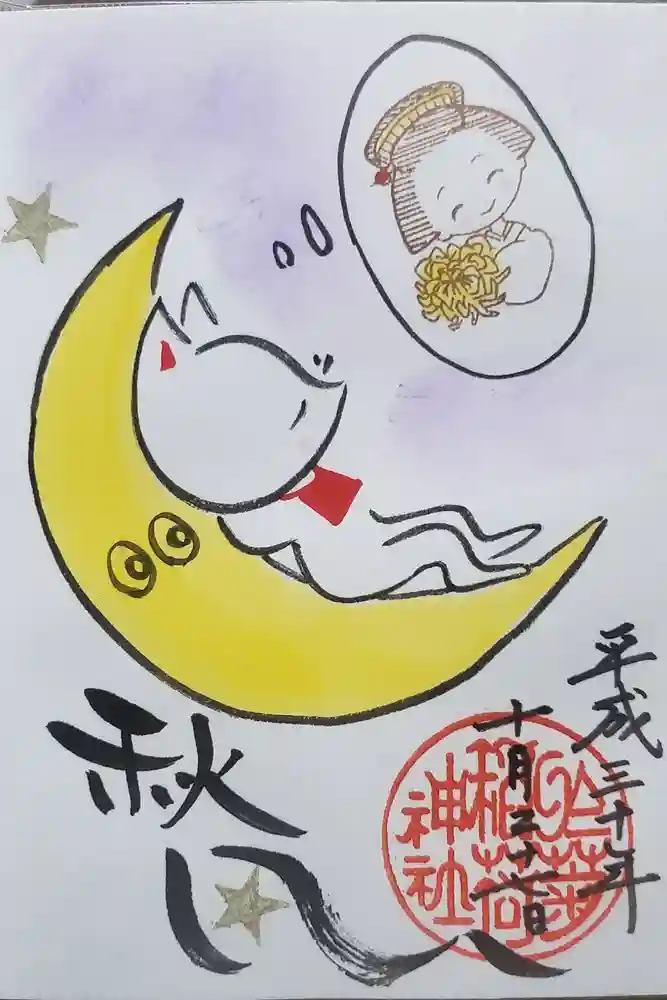 平成三十年
十月二十七日
稲荷
神社
秋